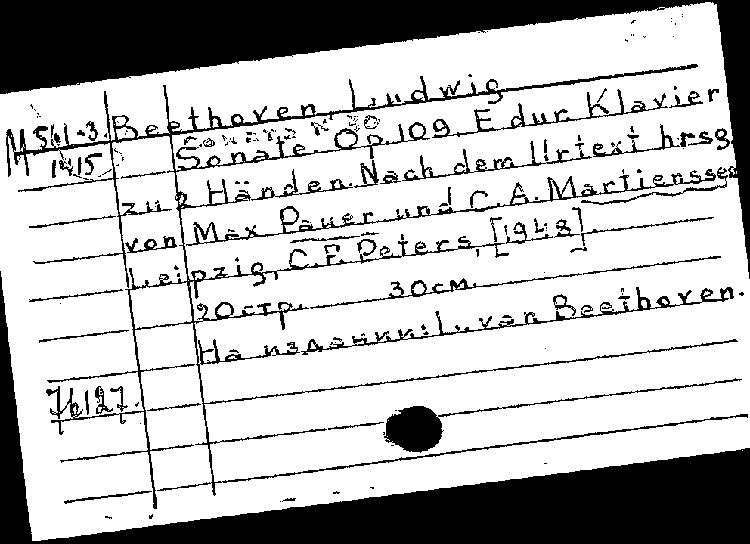 Beethoven, Ludwig
М 561-3.
1415
Соната № 30
Sonate. Op. 109. E dur. Klavier
zu 2 Händen. Nach dem Urtext hrsg.
von Max Pauer und C. A. Martienssen
Leipzig, C. F. Peters, [1948].
20 стр. 30 см.
На издании: L. van Beethoven.